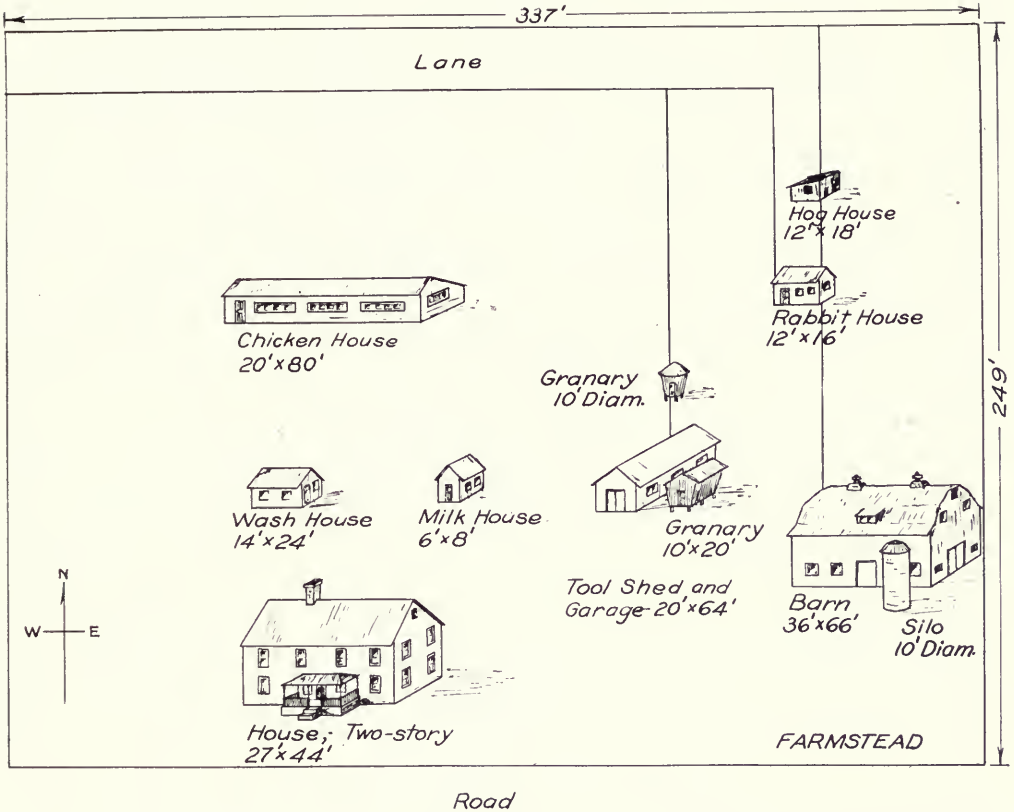 337'
Lane
Hog House
12' x 18'
Rabbit House
12' x 16'
Chicken House
20' x 80'
249'
Granary
10' Diam.
Wash House
14' x 24'
Milk House
6' x 8'
Granary
10' x 20'
Tool Shed and
Garage-20' x 64'
Barn
36' x 66'
Silo
10' Diam.
N
W
E
House,- Two-story
27' x 44'
FARMSTEAD
Road